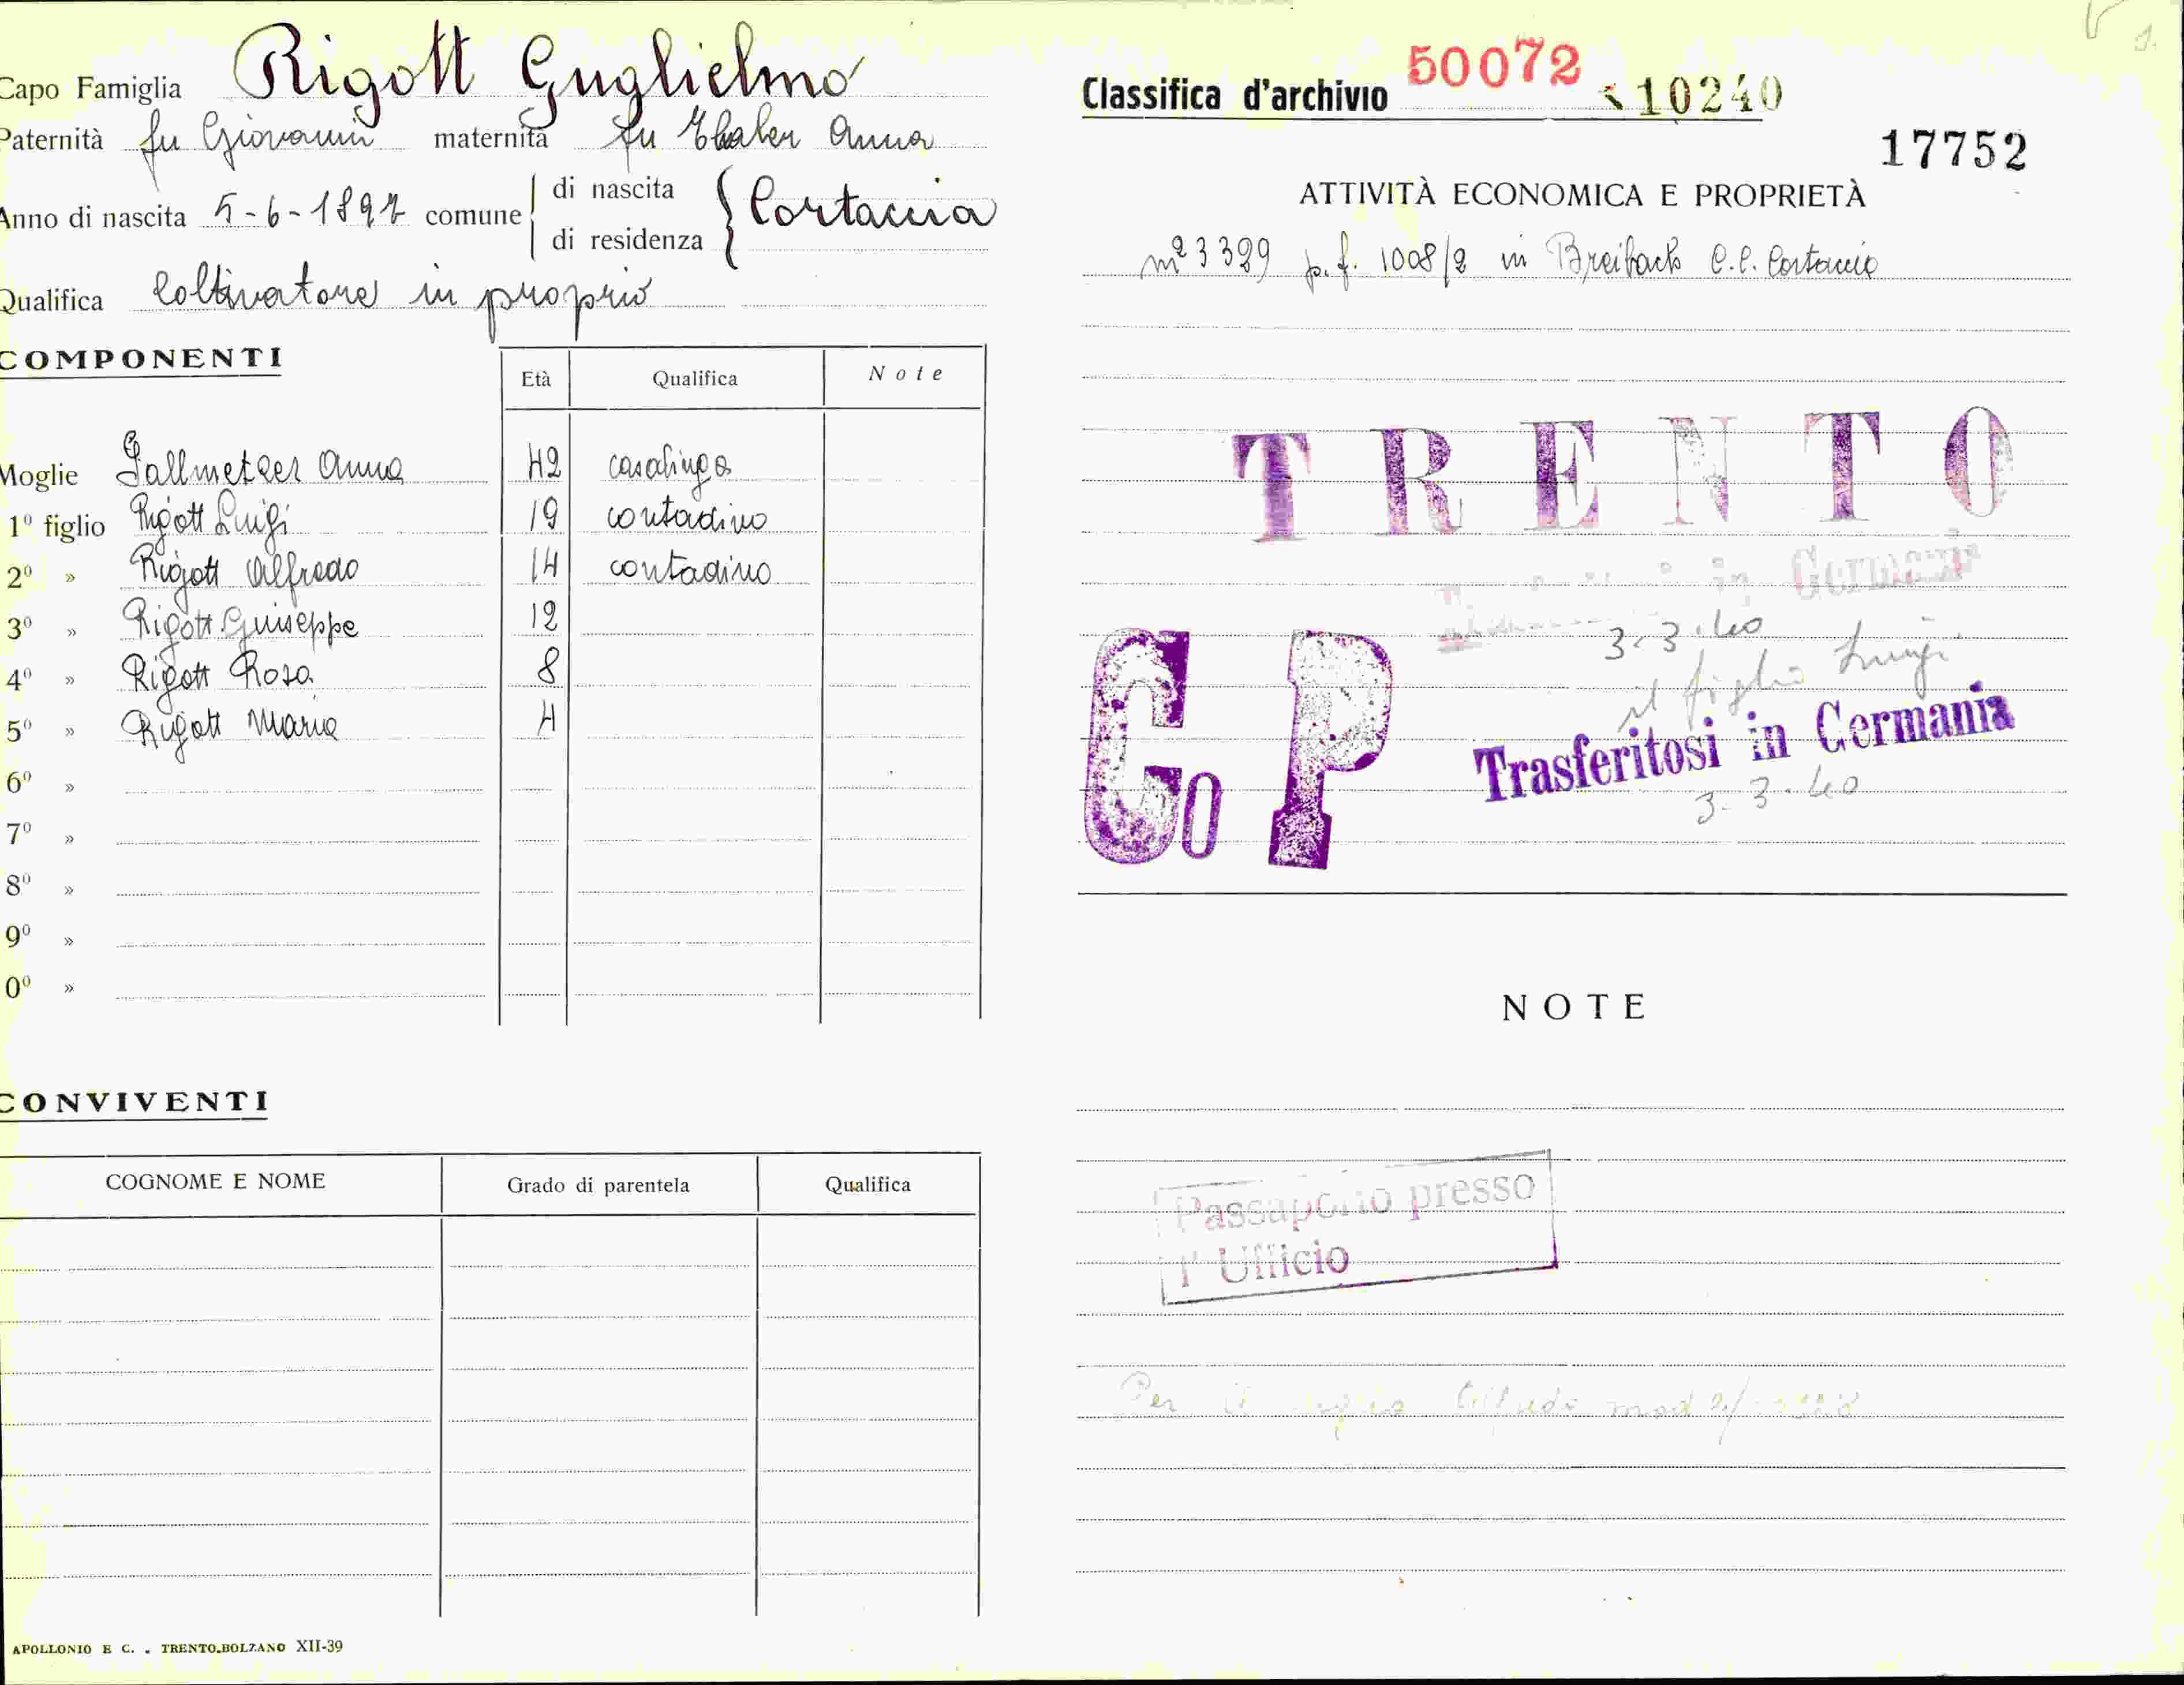 Capo Famiglia Rigott Guglielmo
Paternità fu Giovanni maternità fu Thaler Anna
Anno di nascita 5-6-1897 comune di nascita di residenza Cortaccia
Qualifica Coltivatore in proprio
COMPONENTI
Età Qualifica Note
Moglie Gallmetzer Anna 42 casalinga
1º figlio Rigott Luigi 19 contadino
2º » Rigott Alfredo 14 contadino
3º » Rigott Guiseppe 12
4º » Rigott Rosa 8
5º » Rigott Maria 4
6º »
7º »
8º »
9º »
0º »
CONVIVENTI
COGNOME E NOME Grado di parentela Qualifica
APOLLONIO E C. - TRENTO-BOLZANO XII-39
Classifica d'archivio 50072 10240
17752
ATTIVITÀ ECONOMICA E PROPRIETÀ
m² 3329 p.f. 1008/2 in C.C. Cortaccia
TRENTO
in Germania
3.3.40
il figlio Luigi
Co P
Trasferitosi in Germania
3.3.40
NOTE
Passaporto presso
l'Ufficio
Per il figlio Alfredo mod